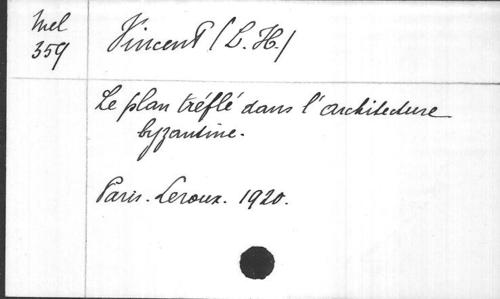 Mel
359
Vincent (L. H.)
Le plan tréflé dans l'architecture
byzantine.
Paris. Leroux. 1920.